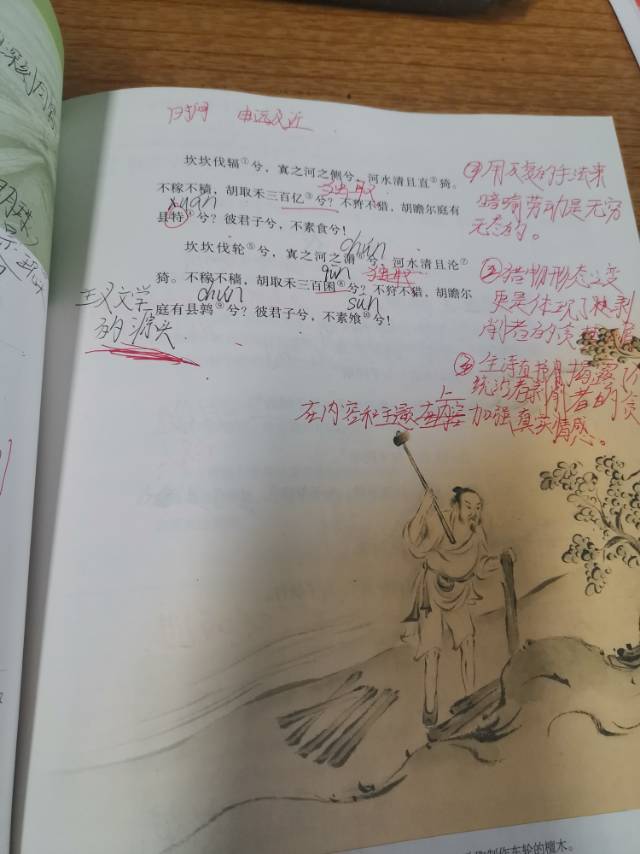 时间 由远及近
坎坎伐辐①兮，寘之河之侧兮，河水清且直②猗。
独取
不稼不穑，胡取禾三百亿③兮？不狩不猎，胡瞻尔庭有
xuán
县特④兮？彼君子兮，不素食兮！
chún
坎坎伐轮⑤兮，寘之河之漘⑥兮，河水清且沦⑦
qūn 独取
猗。不稼不穑，胡取禾三百囷⑧兮？不狩不猎，胡瞻尔
chún sūn
庭有县鹑⑨兮？彼君子兮，不素飧⑩兮！
主义文学
的源头
①用反复的手法来
暗喻劳动是无穷
无态的。
②猎物形态之变
更是体现了被剥
削者的贪
③全诗直接揭露了
统治者剥削者的贪
在内容和主题上
加强真实情感。
制作车轮的檀木。